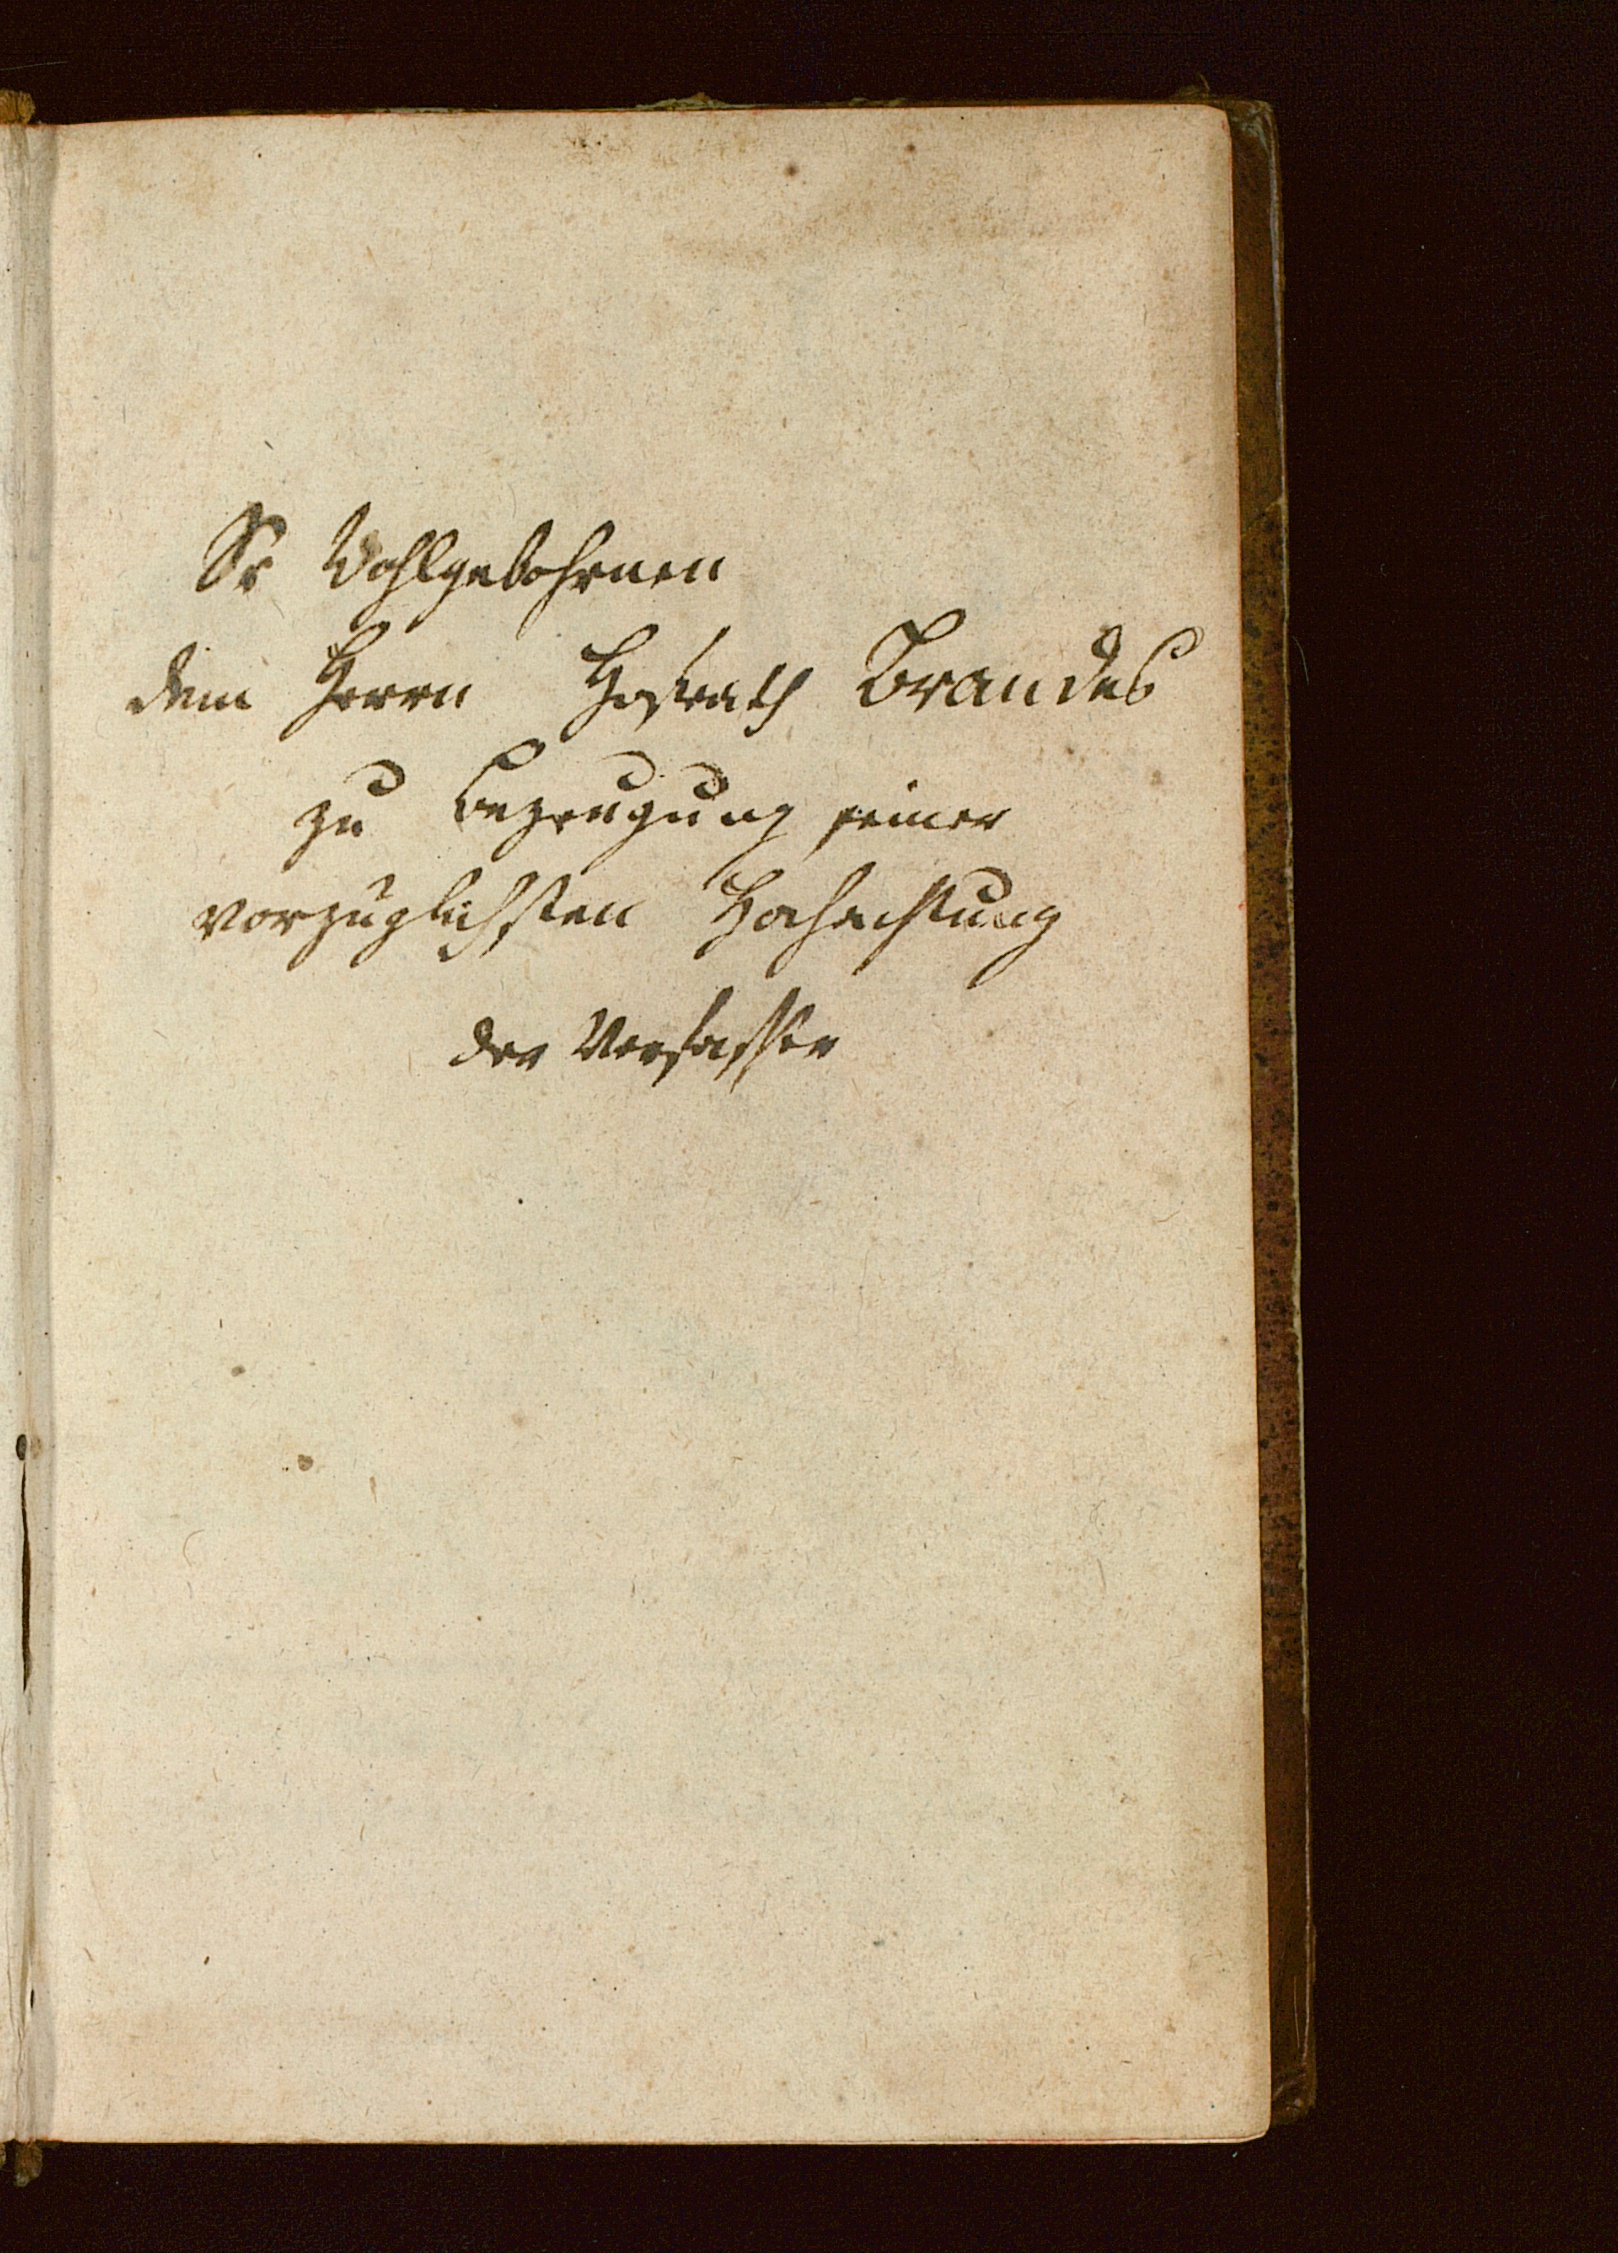 Sr Wohlgebohrnen
dem Herrn Hofrath Brandes
zu Bezeugung seiner
vorzüglichsten Hochachtung
der Verfasser